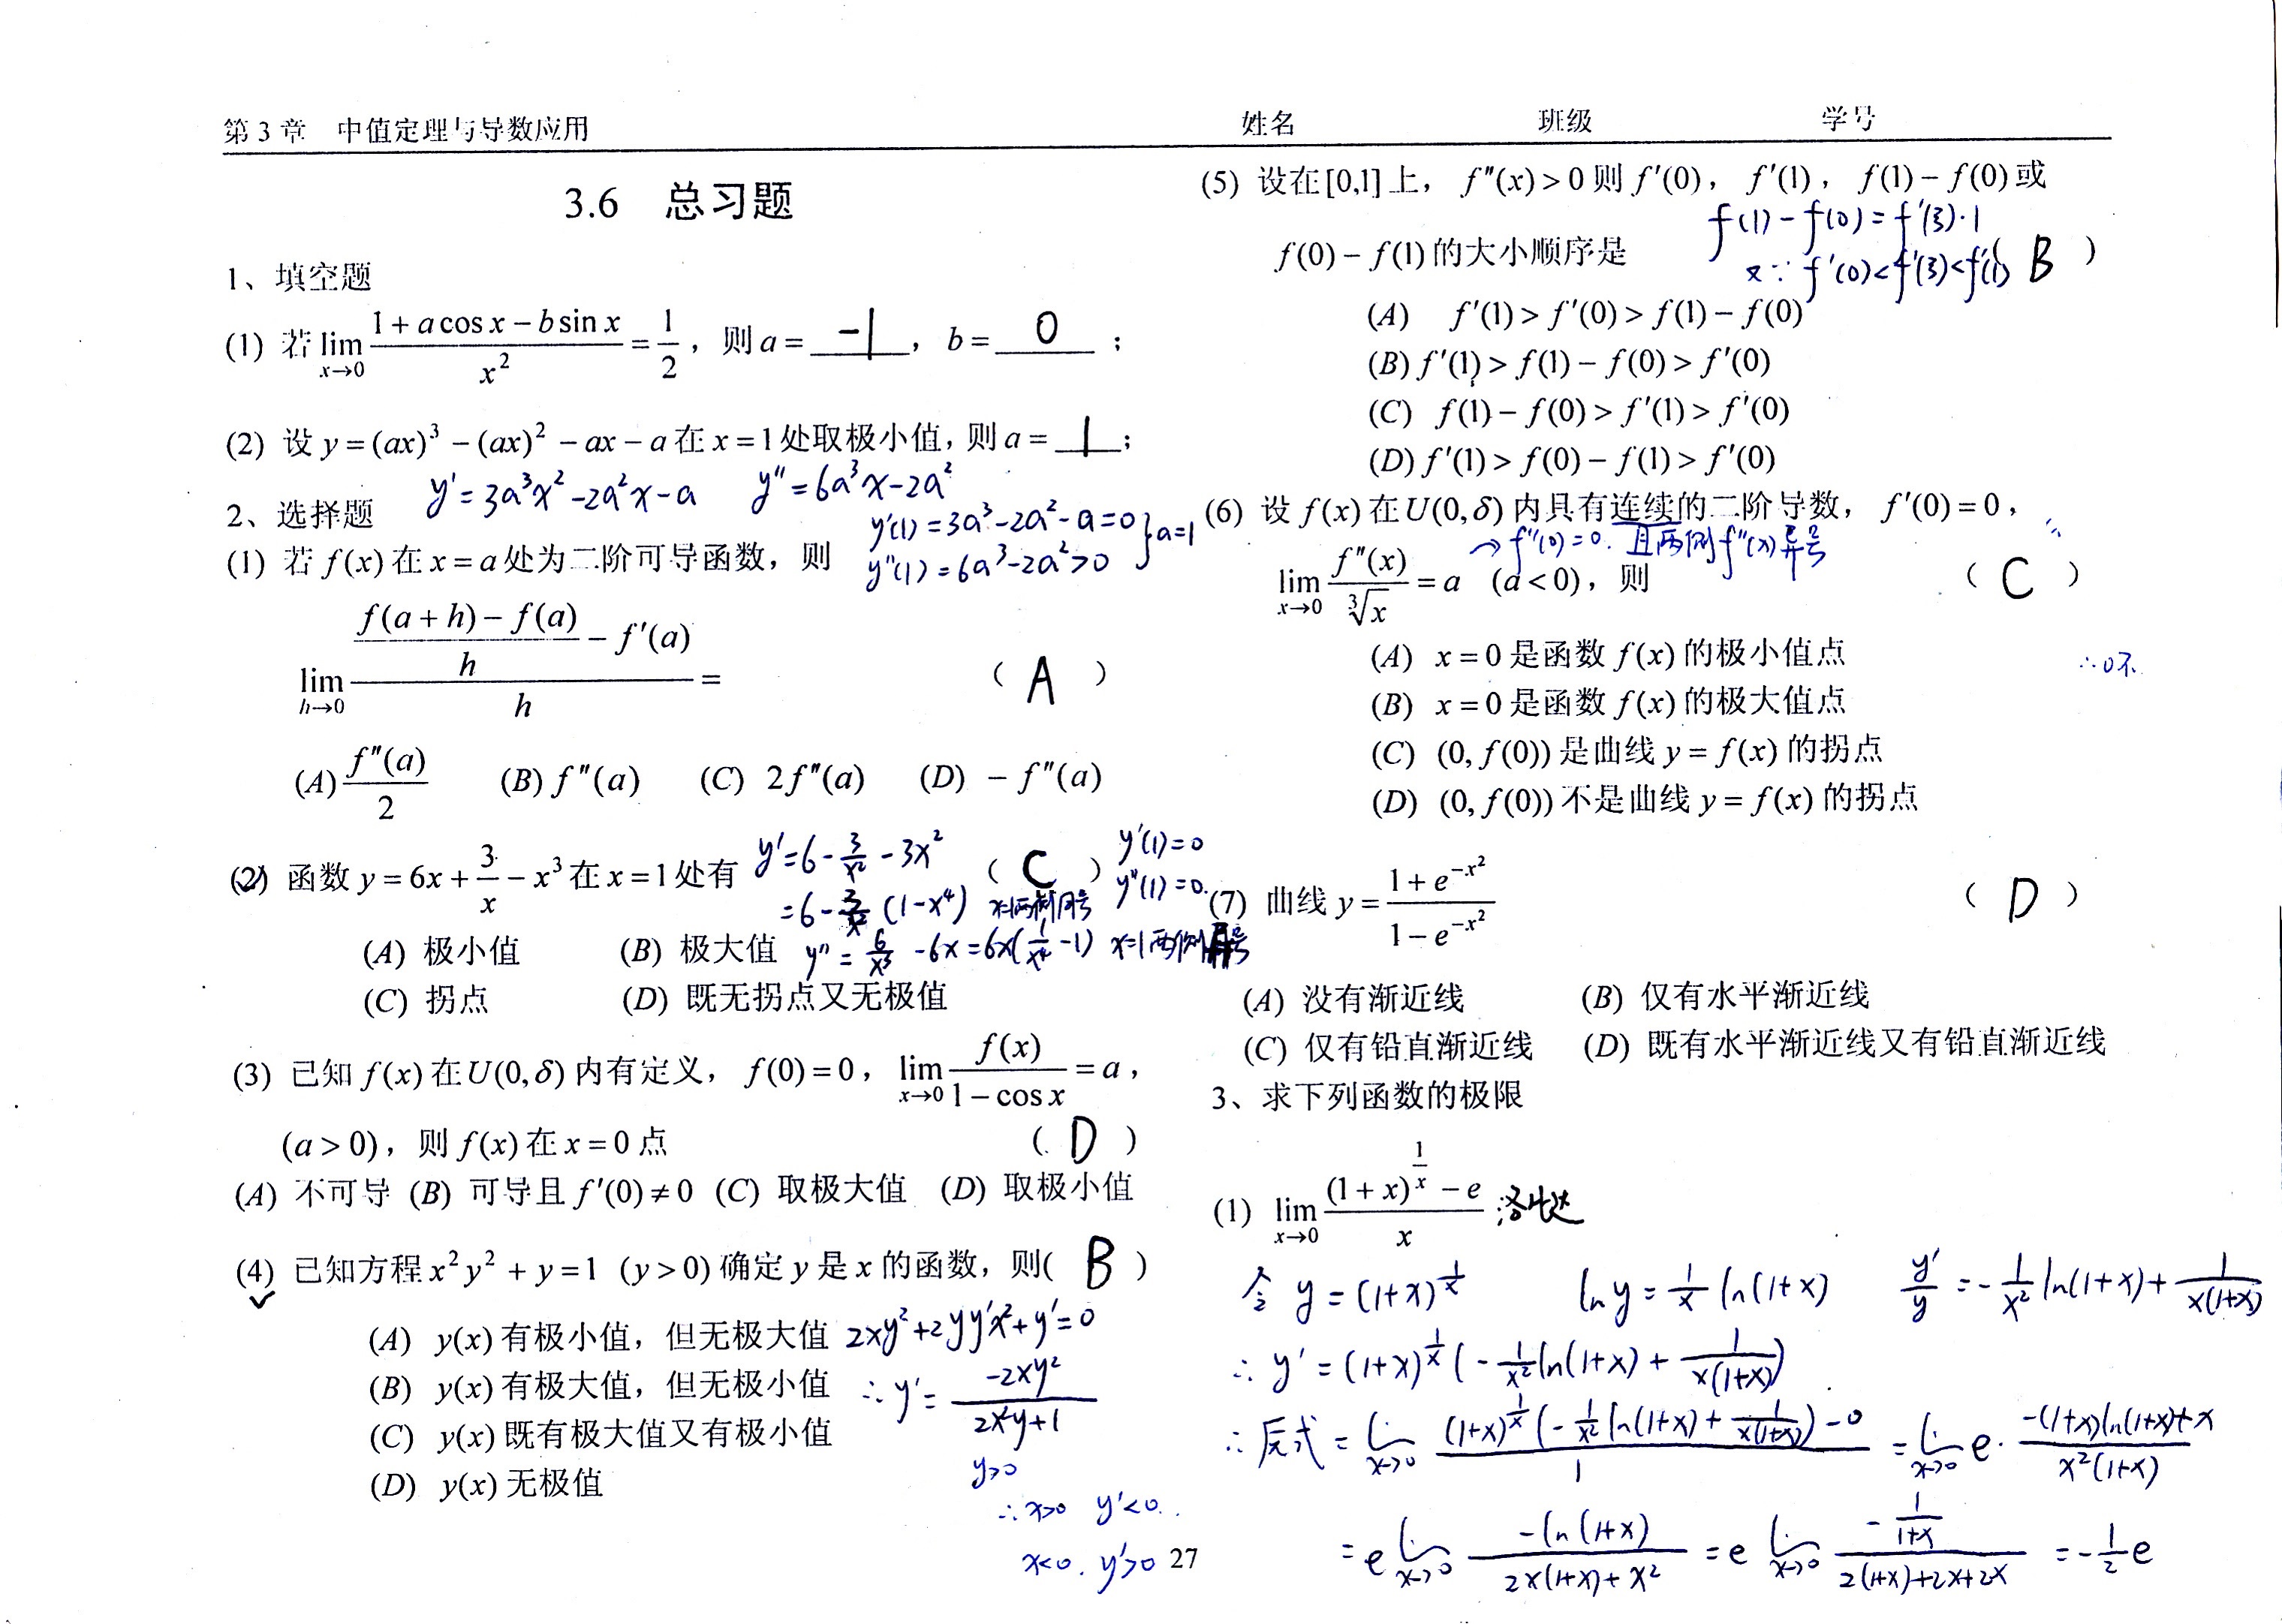 第 3 章 中值定理与导数应用 姓名 班级 学号
3.6 总习题
1、填空题
(1) 若 lim_{x→0} (1 + a cos x − b sin x)/x² = 1/2，则 a = -1，b = 0；
(2) 设 y = (ax)³ − (ax)² − ax − a 在 x = 1 处取极小值，则 a = 1；
y' = 3a³x² − 2a²x − a y'' = 6a³x − 2a²
2、选择题
y'(1) = 3a³ − 2a² − a = 0
y''(1) = 6a³ − 2a² > 0 } a = 1
(1) 若 f(x) 在 x = a 处为二阶可导函数，则
lim_{h→0} ((f(a + h) − f(a))/h − f'(a))/h = （ A ）
(A) f''(a)/2 (B) f''(a) (C) 2f''(a) (D) − f''(a)
(2) 函数 y = 6x + 3/x − x³ 在 x = 1 处有 （ C ）
y' = 6 − 3/x² − 3x²
y'(1) = 0
y''(1) = 0.
= 6 − 3/x² (1 − x⁴) x=1两侧同号
(A) 极小值 (B) 极大值
y'' = 6/x³ − 6x = 6x(1/x⁴ − 1) x=1两侧异号
(C) 拐点 (D) 既无拐点又无极值
(3) 已知 f(x) 在 U(0,δ) 内有定义，f(0) = 0，lim_{x→0} f(x)/(1 − cos x) = a，
(a > 0)，则 f(x) 在 x = 0 点 （ D ）
(A) 不可导 (B) 可导且 f'(0) ≠ 0 (C) 取极大值 (D) 取极小值
(4) 已知方程 x²y² + y = 1 (y > 0) 确定 y 是 x 的函数，则( B )
(A) y(x) 有极小值，但无极大值
2xy² + 2yy'x² + y' = 0
(B) y(x) 有极大值，但无极小值
∴ y' = −2xy²/(2x²y + 1)
(C) y(x) 既有极大值又有极小值
y>0
(D) y(x) 无极值
∴ x>0 y'<0.
x<0. y'>0
27
(5) 设在[0,1]上，f''(x) > 0 则 f'(0)，f'(1)，f(1) − f(0) 或
f(1) − f(0) = f'(ξ)·1
f(0) − f(1) 的大小顺序是 （ B ）
又∵ f'(0) < f'(ξ) < f'(1)
(A) f'(1) > f'(0) > f(1) − f(0)
(B) f'(1) > f(1) − f(0) > f'(0)
(C) f(1) − f(0) > f'(1) > f'(0)
(D) f'(1) > f(0) − f(1) > f'(0)
(6) 设 f(x) 在 U(0,δ) 内具有连续的二阶导数，f'(0) = 0，
→ f''(0) = 0. 且两侧 f''(x) 异号
lim_{x→0} f''(x)/∛x = a (a < 0)，则 （ C ）
(A) x = 0 是函数 f(x) 的极小值点
∴0不
(B) x = 0 是函数 f(x) 的极大值点
(C) (0, f(0)) 是曲线 y = f(x) 的拐点
(D) (0, f(0)) 不是曲线 y = f(x) 的拐点
(7) 曲线 y = (1 + e^{−x²})/(1 − e^{−x²}) （ D ）
(A) 没有渐近线 (B) 仅有水平渐近线
(C) 仅有铅直渐近线 (D) 既有水平渐近线又有铅直渐近线
3、求下列函数的极限
(1) lim_{x→0} ((1 + x)^{1/x} − e)/x ;洛必达
令 y = (1+x)^{1/x} ln y = 1/x ln(1+x) y'/y = −1/x² ln(1+x) + 1/(x(1+x))
∴ y' = (1+x)^{1/x} (−1/x² ln(1+x) + 1/(x(1+x)))
∴ 原式 = lim_{x→0} ((1+x)^{1/x} (−1/x² ln(1+x) + 1/(x(1+x))) − 0)/1 = lim_{x→0} e · (−(1+x)ln(1+x)+x)/(x²(1+x))
= e lim_{x→0} (−ln(1+x))/(2x(1+x)+x²) = e lim_{x→0} (−1/(1+x))/(2(1+x)+2x+2x) = −1/2 e